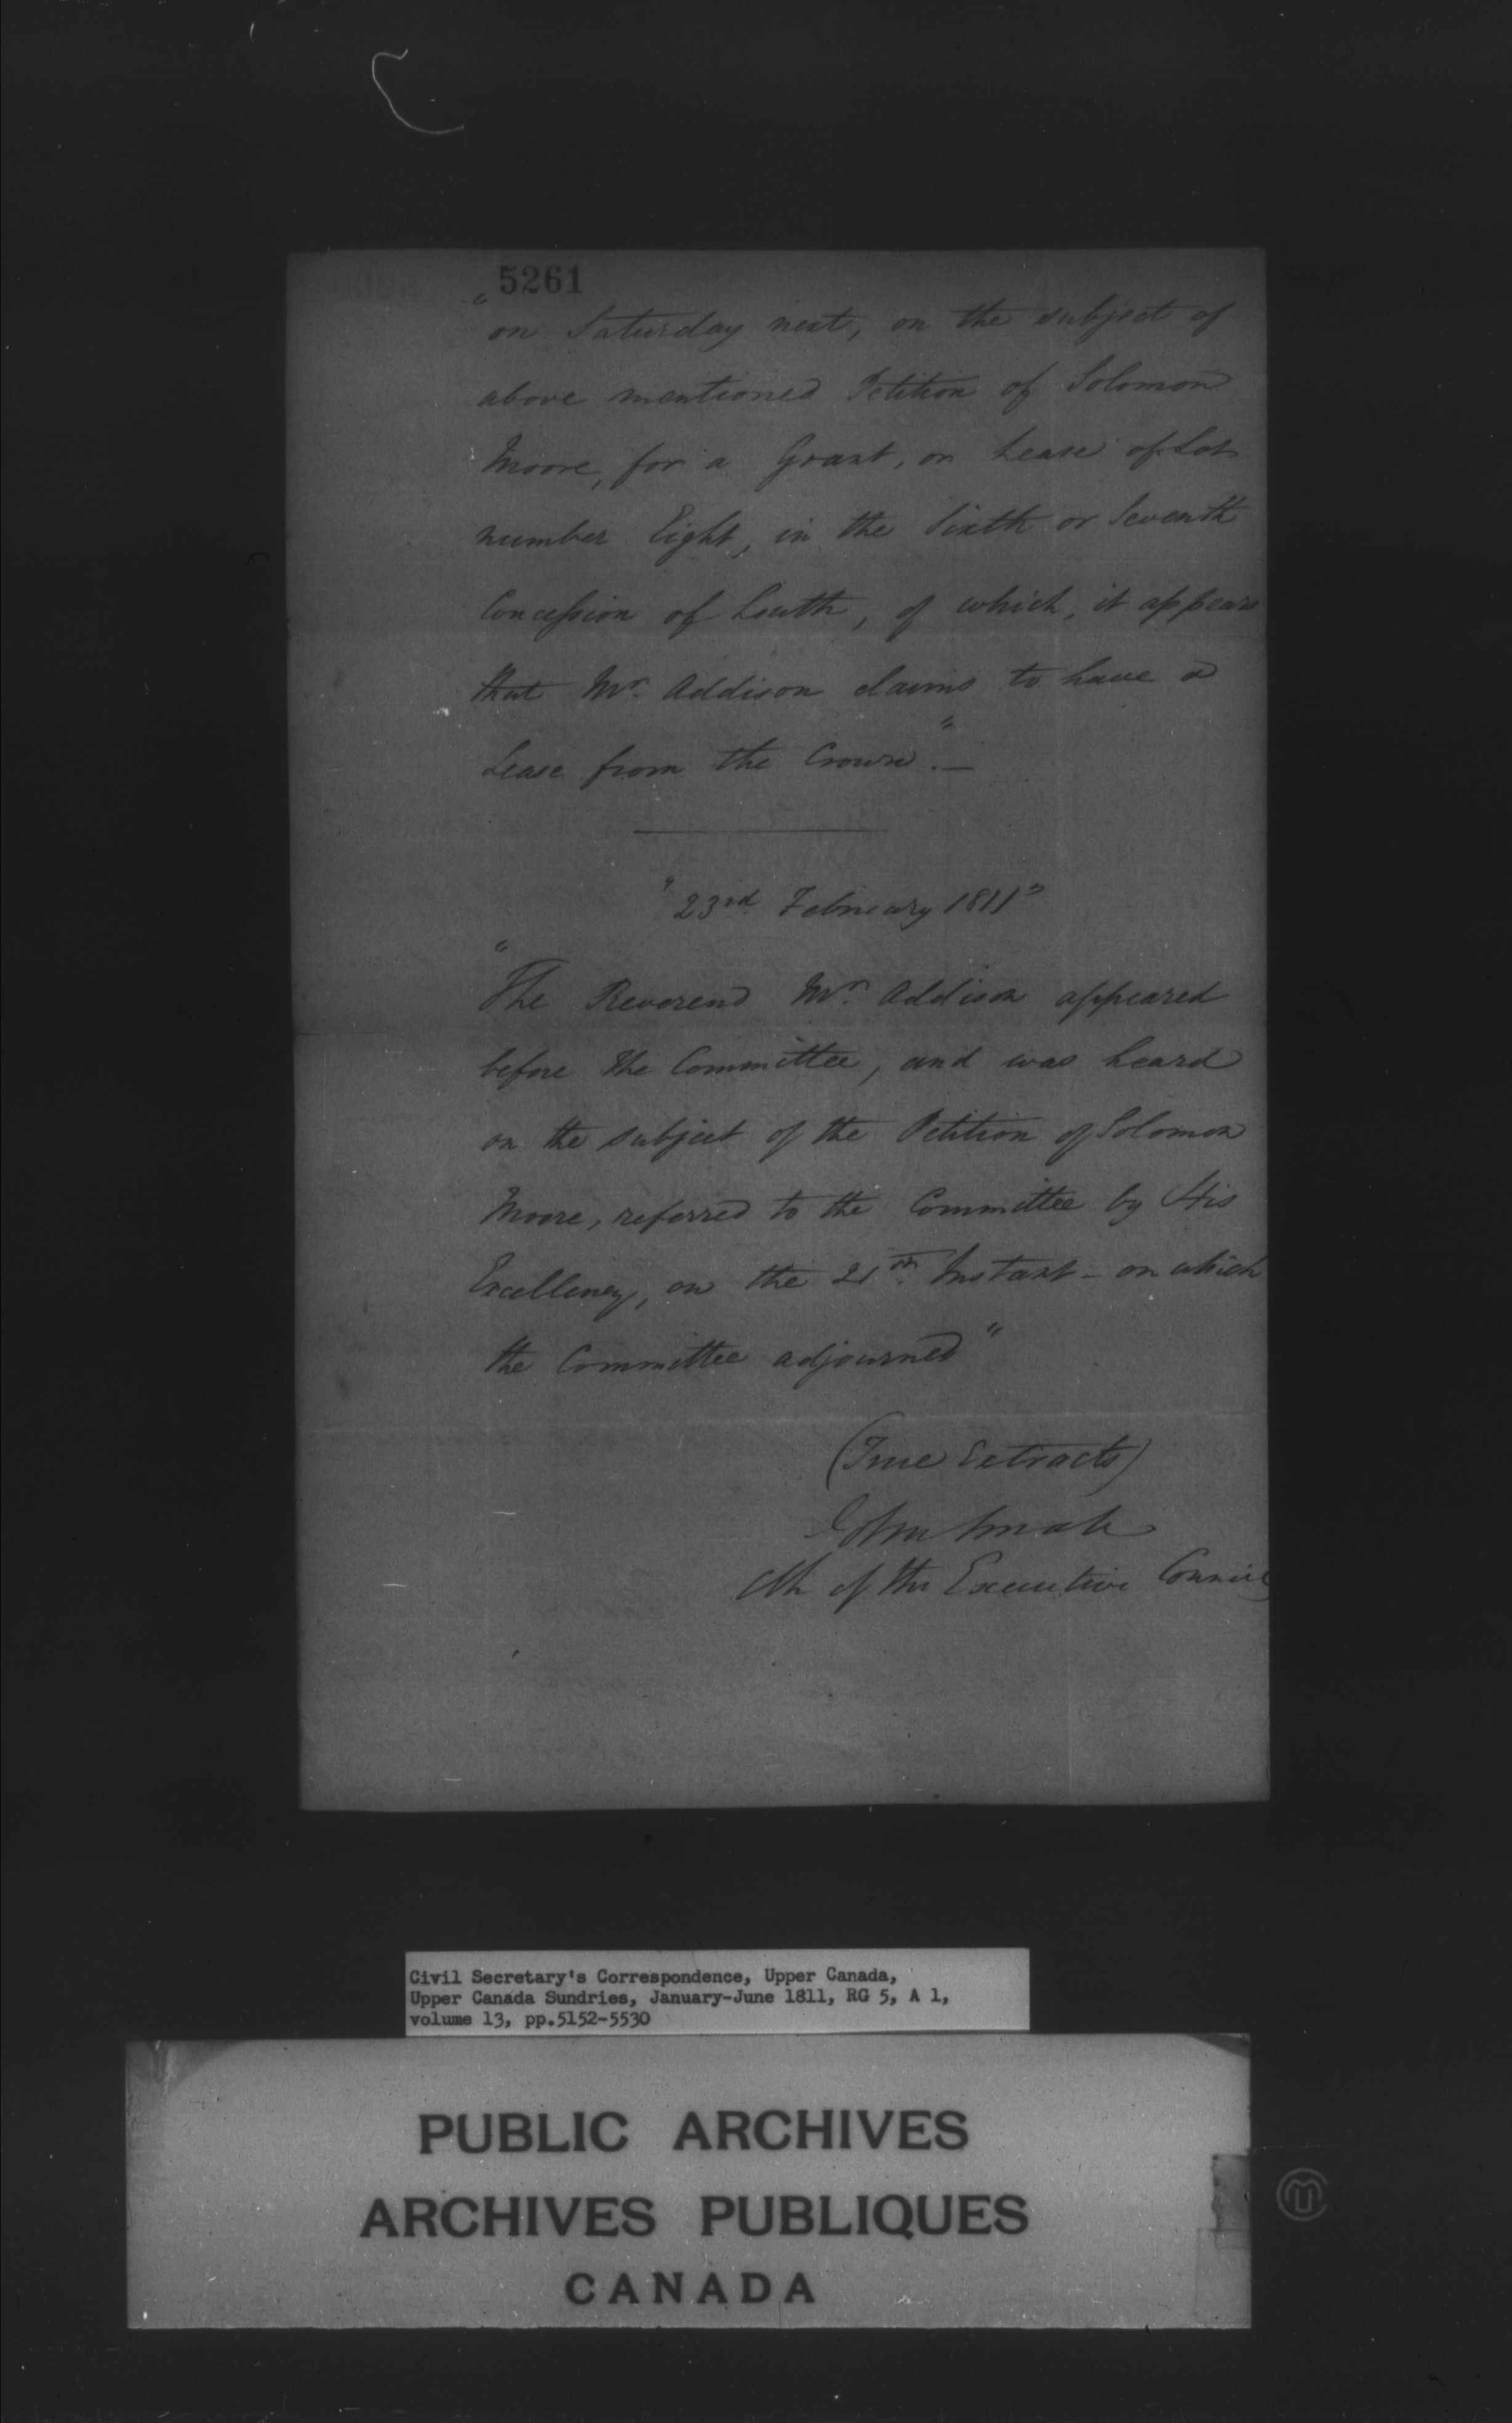 5261
"on Saturday next, on the subject of
above mentioned Petition of Solomon
Moore, for a Grant, or Lease of Lot
number Eight, in the Sixth or Seventh
Concession of Louth, of which, it appears
that Mr. Addison claims to have a
Lease from the Crown." —
"23rd February 1811"
"The Reverend Mr. Addison appeared
before the Committee, and was heard
on the subject of the Petition of Solomon
Moore, referred to the Committee by His
Excellency, on the 21st Instant – on which
the Committee adjourned"
(True Extracts)
John Small
Clk of the Executive Council
Civil Secretary's Correspondence, Upper Canada,
Upper Canada Sundries, January-June 1811, RG 5, A 1,
volume 13, pp.5152-5530
PUBLIC ARCHIVES
ARCHIVES PUBLIQUES
CANADA